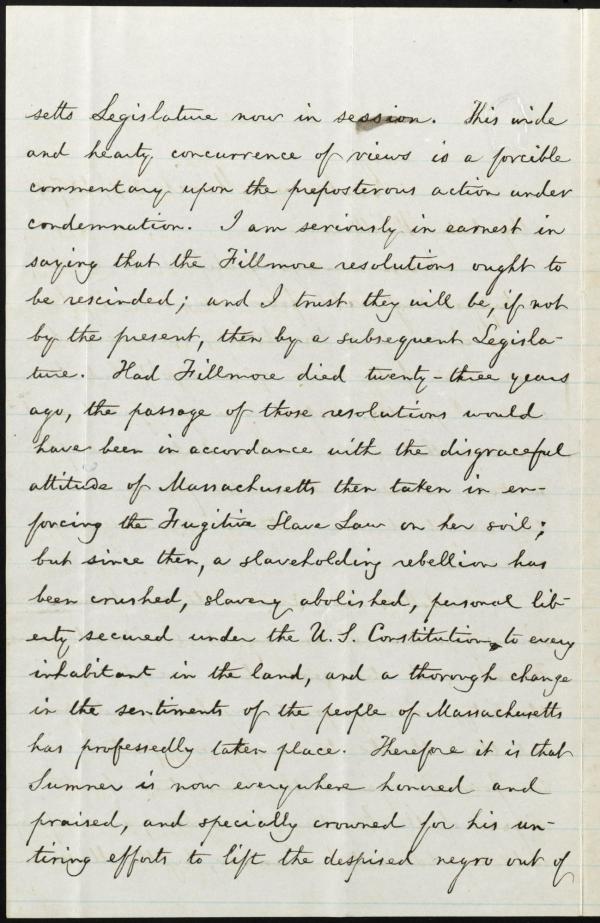 setts Legislature now in session. This wide
and hearty concurrence of views is a forcible
commentary upon the preposterous action under
condemnation. I am seriously in earnest in
saying that the Fillmore resolutions ought to
be rescinded; and I trust they will be, if not
by the present, then by a subsequent Legisla-
ture. Had Fillmore died twenty-three years
ago, the passage of those resolutions would
have been in accordance with the disgraceful
attitude of Massachusetts then taken in en-
forcing the Fugitive Slave Law on her soil;
but since then, a slaveholding rebellion has
been crushed, slavery abolished, personal lib-
erty secured under the U. S. Constitution, to every
inhabitant in the land, and a thorough change
in the sentiments of the people of Massachusetts
has professedly taken place. Therefore it is that
Sumner is now everywhere honored and
praised, and specially crowned for his un-
tiring efforts to lift the despised negro out of